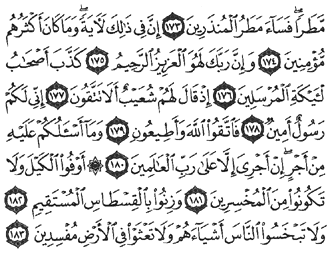 مَّطَرًا ۖ فَسَآءَ مَطَرُ ٱلْمُنذَرِينَ ١٧٣ إِنَّ فِى ذَٰلِكَ لَءَايَةً ۖ وَمَا كَانَ أَكْثَرُهُم
مُّؤْمِنِينَ ١٧٤ وَإِنَّ رَبَّكَ لَهُوَ ٱلْعَزِيزُ ٱلرَّحِيمُ ١٧٥ كَذَّبَ أَصْحَٰبُ
لْـَٔيْكَةِ ٱلْمُرْسَلِينَ ١٧٦ إِذْ قَالَ لَهُمْ شُعَيْبٌ أَلَا تَتَّقُونَ ١٧٧ إِنِّى لَكُمْ
رَسُولٌ أَمِينٌ ١٧٨ فَٱتَّقُوا۟ ٱللَّهَ وَأَطِيعُونِ ١٧٩ وَمَآ أَسْـَٔلُكُمْ عَلَيْهِ
مِنْ أَجْرٍ ۖ إِنْ أَجْرِىَ إِلَّا عَلَىٰ رَبِّ ٱلْعَٰلَمِينَ ١٨٠ ۞ أَوْفُوا۟ ٱلْكَيْلَ وَلَا
تَكُونُوا۟ مِنَ ٱلْمُخْسِرِينَ ١٨١ وَزِنُوا۟ بِٱلْقِسْطَاسِ ٱلْمُسْتَقِيمِ ١٨٢
وَلَا تَبْخَسُوا۟ ٱلنَّاسَ أَشْيَآءَهُمْ وَلَا تَعْثَوْا۟ فِى ٱلْأَرْضِ مُفْسِدِينَ ١٨٣